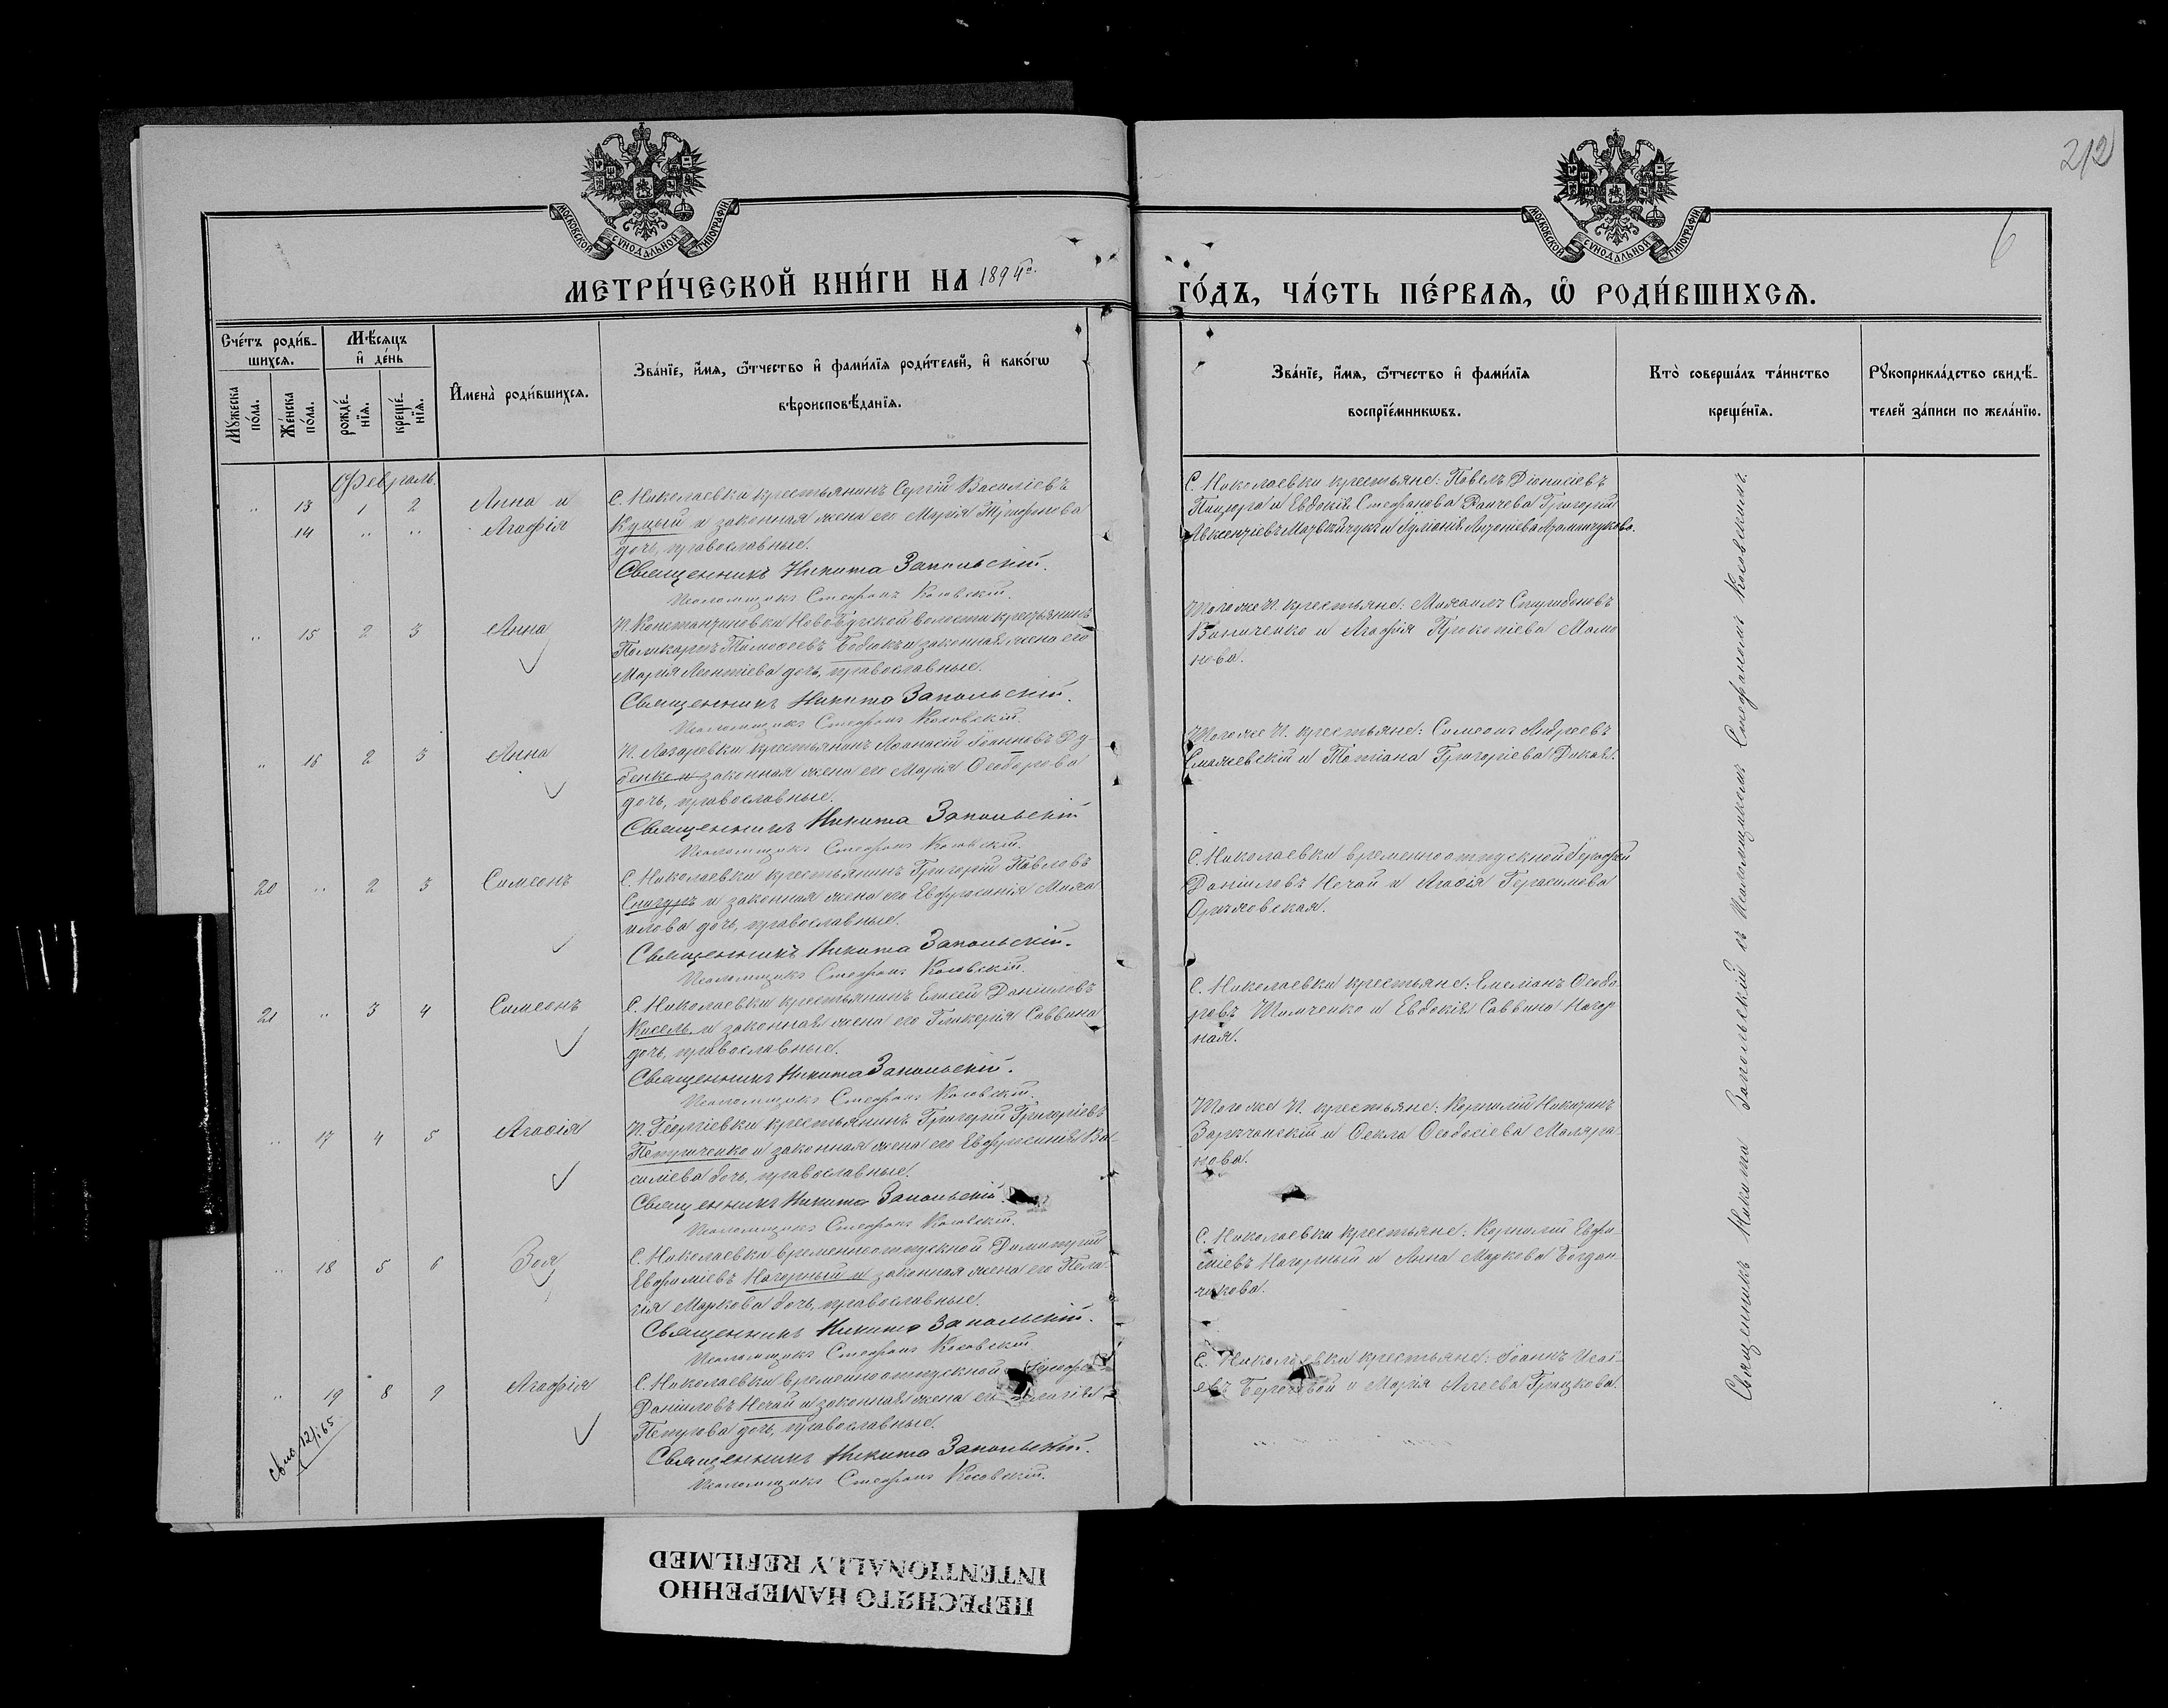 212
6
МОСКОВСКОЙ СУНОДАЛЬНОЙ ТИПОГРАФІИ
МОСКОВСКОЙ СУНОДАЛЬНОЙ ТИПОГРАФІИ
МЕТРИ́ЧЕСКОЙ КНИ́ГИ НА 1894й.
ГО́ДЪ, ЧА́СТЬ ПЕ́РВАѦ, Ѡ РОДИ́ВШИХСѦ.
Сче́тъ роди́в-
шихсѧ.
Мꙋ́жеска по́ла.
Же́нска по́ла.
Мѣ́сѧцъ
и҆ де́нь
рожде́-
нїѧ.
креще́-
нїѧ.
И҆мена̀ роди́вшихсѧ.
Зва́нїе, и҆́мѧ, ѻ҆́тчество и҆ фами́лїѧ роди́телей, и҆ како́гѡ
вѣроисповѣ́данїѧ.
Зва́нїе, и҆́мѧ, ѻ҆́тчество и҆ фами́лїѧ
воспрїе́мникѡвъ.
Кто̀ соверша́лъ та́инство
креще́нїѧ.
Рꙋкоприкла́дство свидѣ́-
телей за́писи по жела́нїю.
Февраль.
„ 13 1 2 Анна и
14 „ „ Агафія
С. Николаевки крестьянинъ Сергій Василіевъ
Куцый и законная жена его Марія Трифонова
дочь, православные.
Священникъ Никита Запольскій.
Псаломщикъ Стефанъ Косовскій.
С. Николаевки крестьяне: Павелъ Діонисіевъ
и Евдокія Стефанова Григорій
Авксентіевъ Матвѣйчукъ и
„ 15 2 3 Анна
П. Константиновки Ново-Бугской волости крестьянинъ
Поликарпъ Тимофеевъ Бабюкъ и законная жена его
Марія Леонтіева дочь, православные.
Священникъ Никита Запольскій.
Псаломщикъ Стефанъ Косовскій.
Того же П. крестьяне: Михаилъ Спиридоновъ
и Агафія Прокопіева Мамо
нова.
„ 16 2 3 Анна
П. Лазаревки крестьянинъ Афанасій Іоанновъ Ду-
бенко и законная жена его Марія Ѳеодорова
дочь, православные.
Священникъ Никита Запольскій
Псаломщикъ Стефанъ Косовскій.
Того же П. крестьяне: Симеонъ Андреевъ
и Татіана Григоріева
20 „ 2 3 Симеонъ
С. Николаевки крестьянинъ Григорій Павловъ
Снигуръ и законная жена его Евфросинія Миха
илова дочь, православные.
Священникъ Никита Запольскій.
Псаломщикъ Стефанъ Косовскій.
С. Николаевки временноотпускной
Даніиловъ Нечай и Агафія Герасимова
21 „ 3 4 Симеонъ
С. Николаевки крестьянинъ Елисей Даніиловъ
Кисель и законная жена его Гликерія Саввина
дочь, православные.
Священникъ Никита Запольскій.
Псаломщикъ Стефанъ Косовскій.
С. Николаевки крестьяне: Емеліанъ Ѳеодо
ровъ Шимченко и Евдокія Саввина Нагор
ная.
„ 17 4 5 Агафія
П. Георгіевки крестьянинъ Григорій Григоріевъ
Петриченко и законная жена его Евфросинія Ва-
силіева дочь, православные.
Священникъ Никита Запольскій.
Псаломщикъ Стефанъ Косовскій.
Того же П. крестьяне: Корнилій Никитинъ
и Ѳекла Ѳеодосіева
нова.
„ 18 5 6 Зоя
С. Николаевки временноотпускной Димитрій
Евфиміевъ Нагорный и законная жена его Пела-
гія Маркова дочь, православные.
Священникъ Никита Запольскій.
Псаломщикъ Стефанъ Косовскій
С. Николаевки крестьяне: Корнилій Евфи-
міевъ Нагорный и Анна Маркова Богдан-
чикова.
„ 19 8 9 Агафія
С. Николаевки временноотпускной
Даніиловъ Нечай и законная жена его
Петрова дочь, православные.
Священникъ Никита Запольскій.
Псаломщикъ Стефанъ Косовскій.
С. Николаевки крестьяне: Іоаннъ Исаі-
евъ Береговой и Марія Грицкова.
Священникъ Никита Запольскій съ Псаломщикомъ Стефаномъ Косовскимъ.
12/I 65
ПЕРЕСНЯТО НАМЕРЕННО
INTENTIONALLY REFILMED